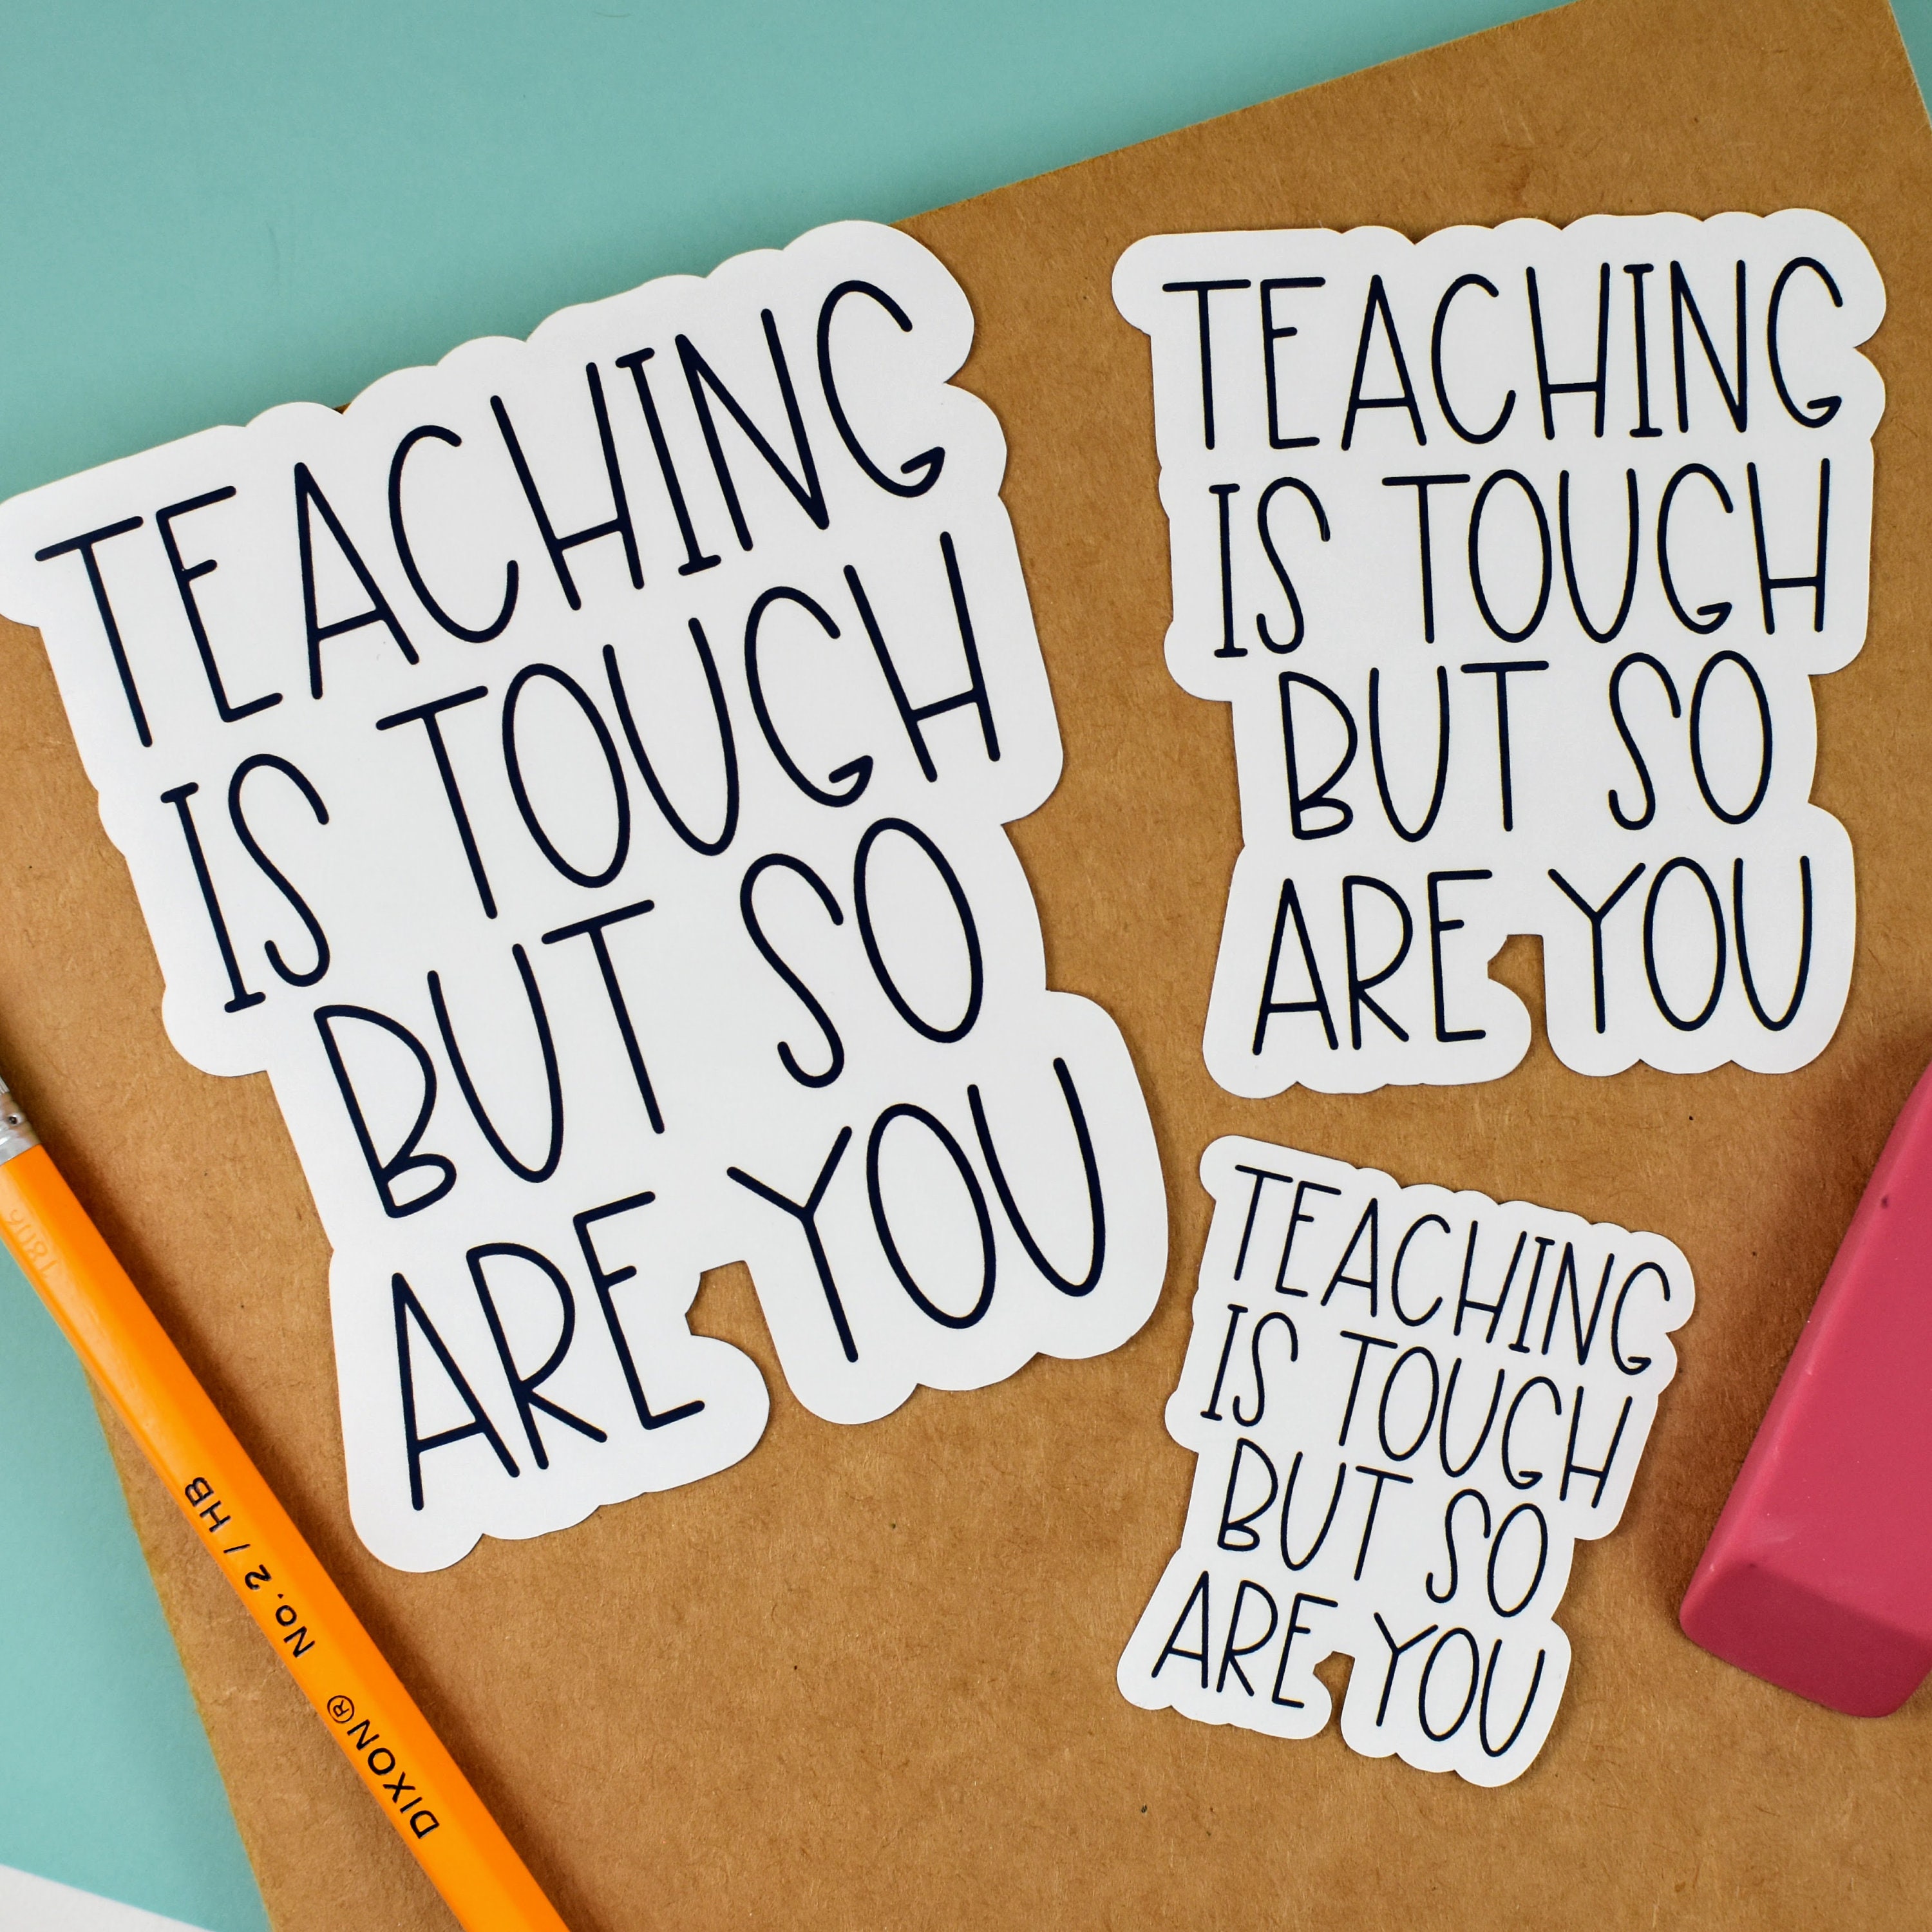 TEACHING
IS TOUGH
BUT SO
ARE YOU
TEACHING
IS TOUGH
BUT SO
ARE YOU
TEACHING
IS TOUGH
BUT SO
ARE YOU
DIXON® No. 2 / HB